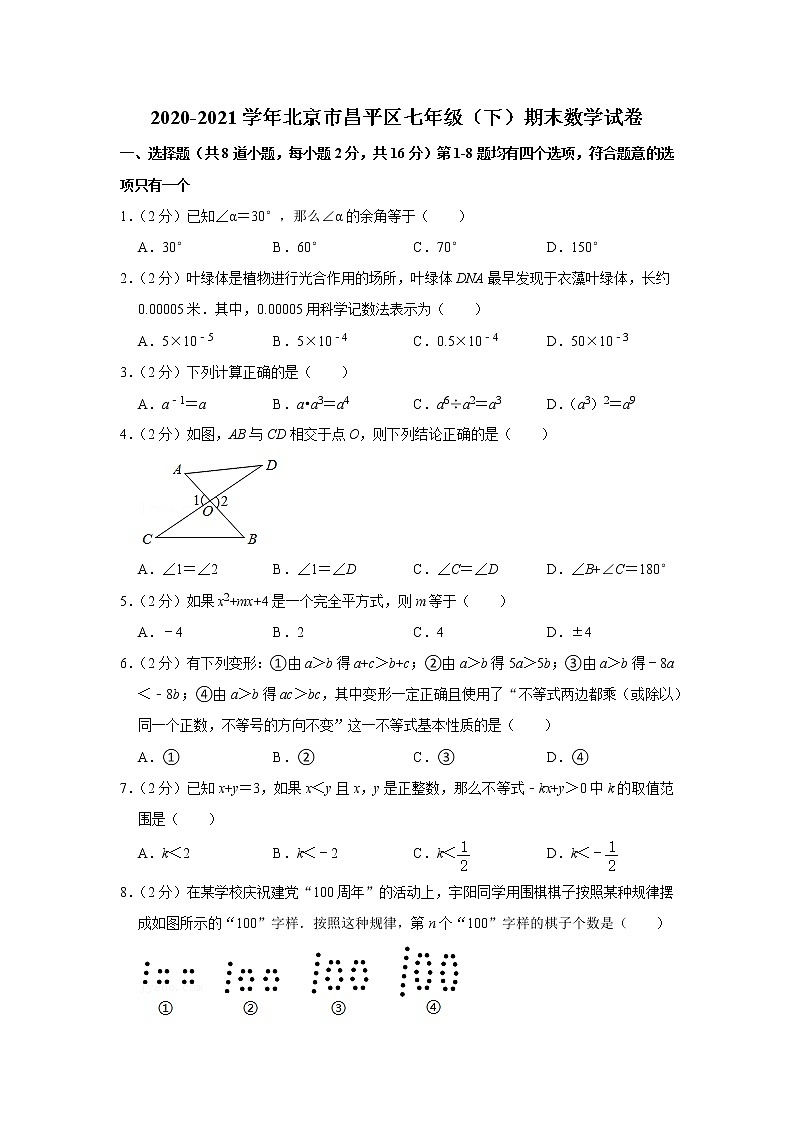 2020-2021学年北京市昌平区七年级（下）期末数学试卷
一、选择题（共8道小题，每小题2分，共16分）第1-8题均有四个选项，符合题意的选
项只有一个
1.（2分）已知∠α＝30°，那么∠α的余角等于（　　）
A．30° B．60° C．70° D．150°
2.（2分）叶绿体是植物进行光合作用的场所，叶绿体DNA最早发现于衣藻叶绿体，长约
0.00005米．其中，0.00005用科学记数法表示为（　　）
A．5×10⁻⁵ B．5×10⁻⁴ C．0.5×10⁻⁴ D．50×10⁻³
3.（2分）下列计算正确的是（　　）
A．a⁻¹＝a B．a•a³＝a⁴ C．a⁶÷a²＝a³ D．（a³）²＝a⁹
4.（2分）如图，AB与CD相交于点O，则下列结论正确的是（　　）
A D
1 2
O
C B
A．∠1＝∠2 B．∠1＝∠D C．∠C＝∠D D．∠B+∠C＝180°
5.（2分）如果x²+mx+4是一个完全平方式，则m等于（　　）
A．﹣4 B．2 C．4 D．±4
6.（2分）有下列变形：①由a＞b得a+c＞b+c；②由a＞b得5a＞5b；③由a＞b得﹣8a
＜﹣8b；④由a＞b得ac＞bc，其中变形一定正确且使用了“不等式两边都乘（或除以）
同一个正数，不等号的方向不变”这一不等式基本性质的是（　　）
A．① B．② C．③ D．④
7.（2分）已知x+y＝3，如果x＜y且x，y是正整数，那么不等式﹣kx+y＞0中k的取值范
围是（　　）
A．k＜2 B．k＜﹣2 C．k＜1/2 D．k＜﹣1/2
8.（2分）在某学校庆祝建党“100周年”的活动上，宇阳同学用围棋棋子按照某种规律摆
成如图所示的“100”字样．按照这种规律，第n个“100”字样的棋子个数是（　　）
① ② ③ ④